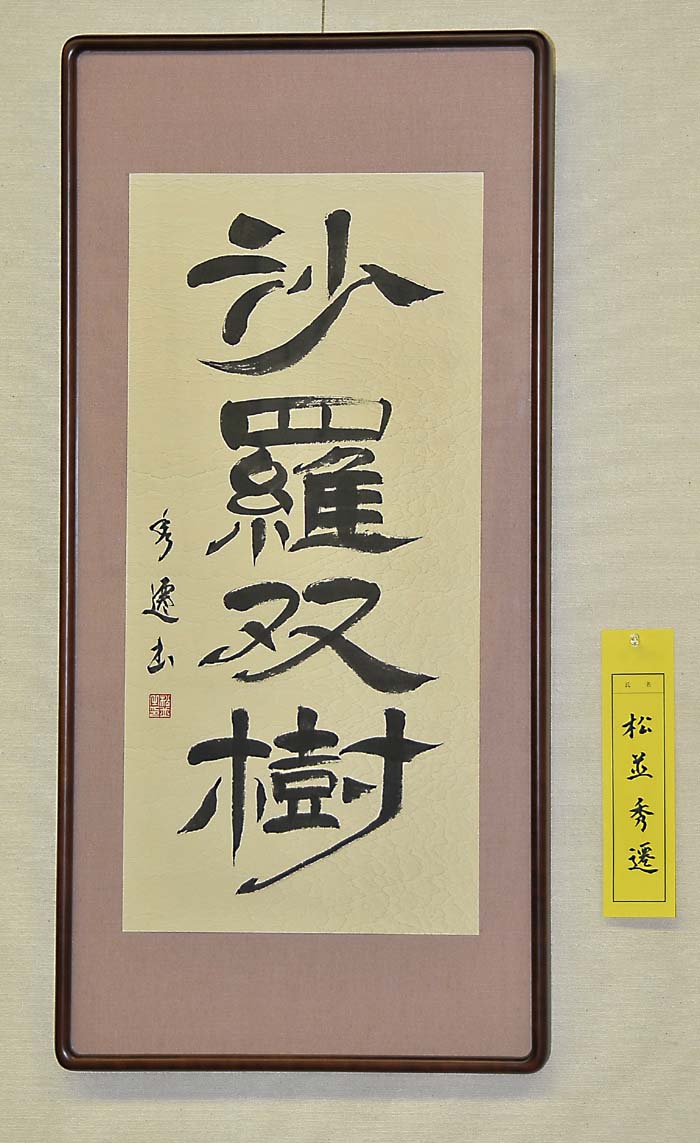 沙羅双樹
秀遷書
氏名
松並秀遷